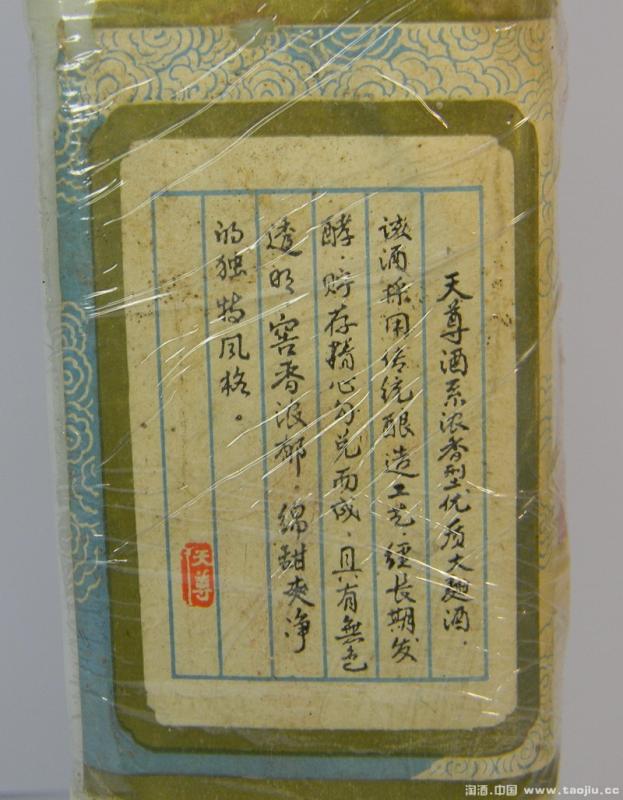 天尊酒系浓香型优质大麯酒，
该酒採用传统酿造工艺，经长期发
酵，贮存精心勾兑而成，具有無色
透明，窖香浓郁，绵甜爽净
的独特风格。
天尊
淘酒.中国 www.taojiu.cc